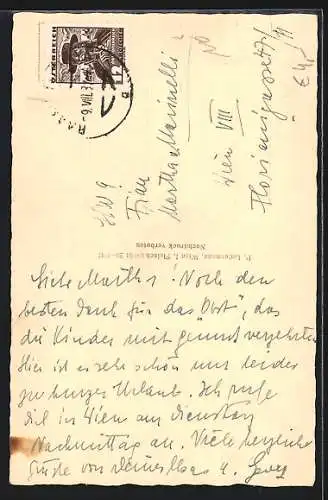 ÖSTERREICH
12
9.VIII.3
H.W.G
Frau
Martha Marinelli
Wien VIII
Floriani gasse
P. Ledermann, Wien I, Fleischmarkt
Nachdruck verboten
Liebe Martha! Noch den
besten Dank für das "Obst", das
die Kinder mit genuß verzehrten
Hier ist es sehr schön nur leider
zu kurzer Urlaub. Ich rufe
dich in Wien am Dienstag
Nachmittag an. Viele herzliche
Grüße von deiner Ilse u.